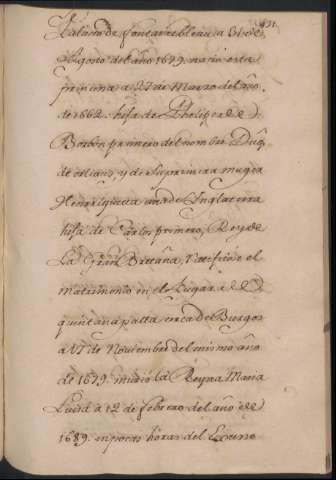 Palacio de fontainebleau a 31 de
Agosto del año 1679. nacio esta
princesa a 27 de Marzo del año
de 1662. hija de Phelipe de
Borbón primero del nombre Duq.
de orleans, y de su primera muger
Henriqueta Ana de Inglaterra
hija de Carlos primero, Rey de
La Gran Bretaña, Ratificose el
matrimonio en el Lugar de
quintanapalla cerca de Burgos
a 17 de Noviembre del mismo año
de 1679. murio la Reyna Maria
Luisa a 12 de febrero del año de
1689. en pocas horas del